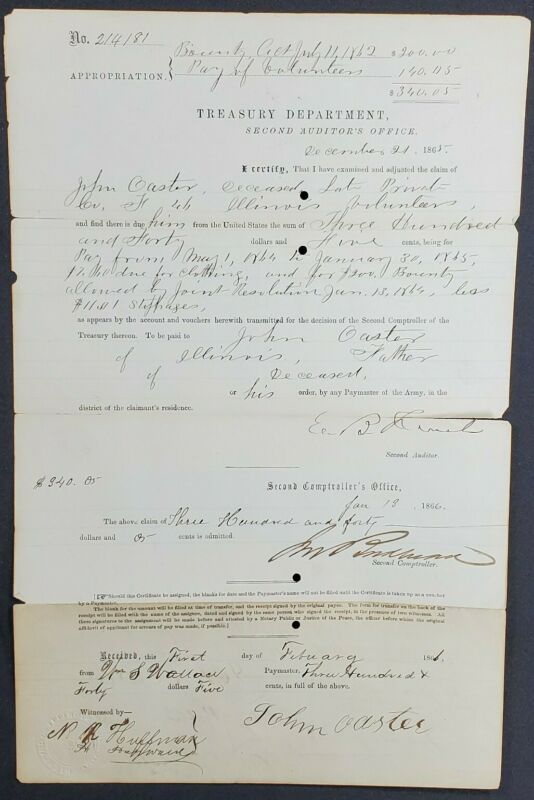 No. 214181
Bounty, Act July 11, 1862 $200.00
APPROPRIATION. } Pay of Volunteers 140.05
$340.05
TREASURY DEPARTMENT,
SECOND AUDITOR'S OFFICE.
December 21. 1865.
I certify, That I have examined and adjusted the claim of
John Oaster, deceased, Late Private
Co. 46 Illinois Volunteers,
and find there is due him from the United States the sum of Three Hundred
and Forty dollars and Five cents, being for
Pay from May 1, 1864 to January 30, 1865,
due for clothing, and for Bounty
allowed by Joint Resolution Jan. 13, 1864, less
Stoppages,
as appears by the account and vouchers herewith transmitted for the decision of the Second Comptroller of the
Treasury thereon. To be paid to John Oaster
of Illinois, Father
of Deceased,
or his order, by any Paymaster of the Army, in the
district of the claimant's residence.
E. B. French
Second Auditor.
Second Comptroller's Office,
$340.05
Jan 13 1866.
The above claim of Three Hundred and forty
dollars and 05 cents is admitted.
Second Comptroller.
Should this Certificate be assigned, the blanks for date and the Paymaster's name will not be filled until the Certificate is taken up as a voucher
by a Paymaster.
The blank for the amount will be filled at time of transfer, and the receipt signed by the original payee. The form for transfer on the back of the
receipt will be filled with the name of the assignee, dated and signed by the same person who signed the receipt, in the presence of two witnesses. All
these signatures to the assignment will be made before and attested by a Notary Public or Justice of the Peace, the officer before whom the original
affidavit of applicant for arrears of pay was made, if possible.]
Received, this First day of February 1866,
from Wm S Wallace Paymaster, Three Hundred &
Forty dollars Five cents, in full of the above.
Witnessed by—
John Oaster
N. R. Huffman